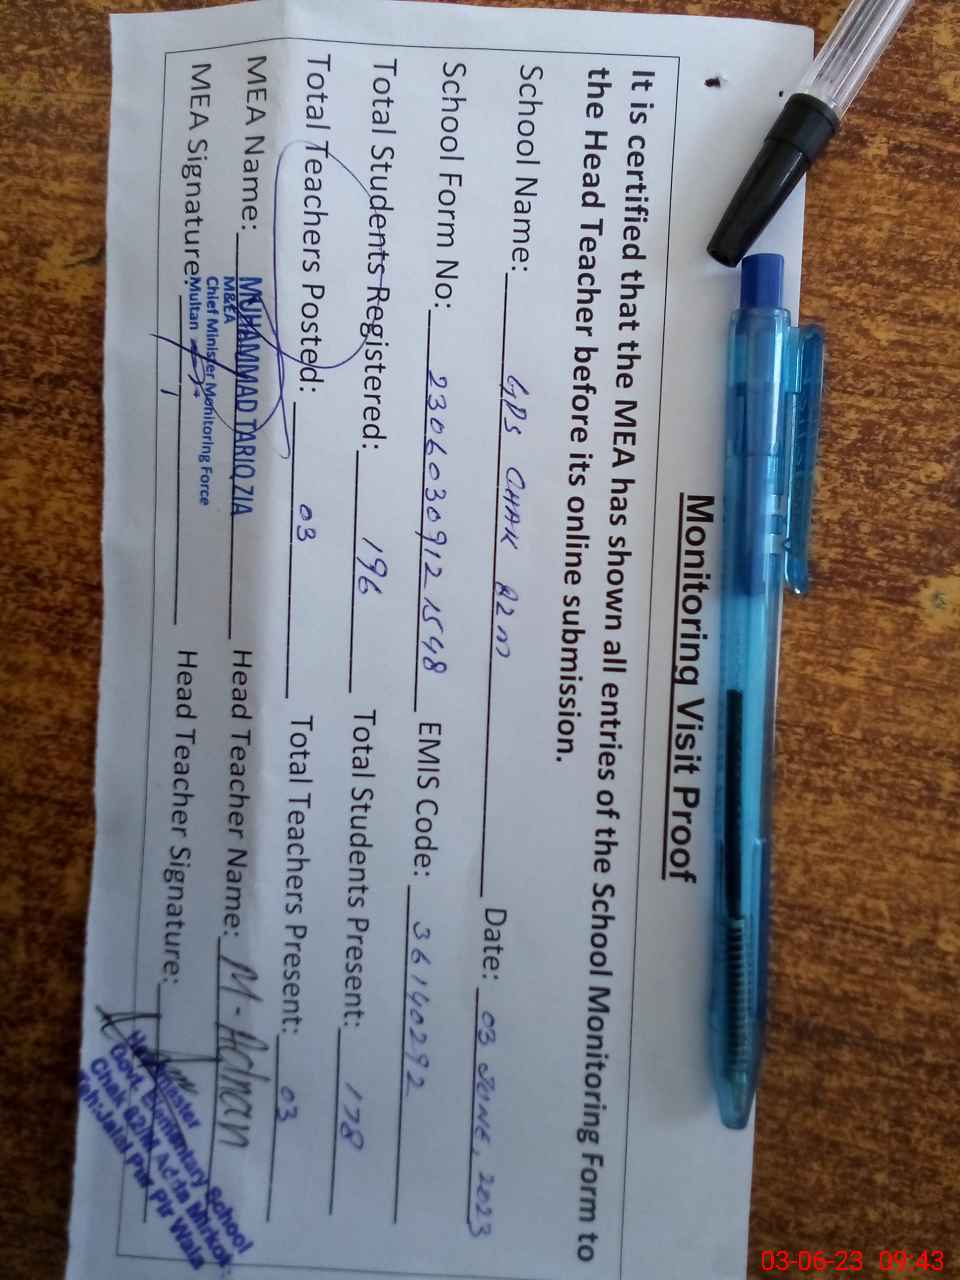 Monitoring Visit Proof
It is certified that the MEA has shown all entries of the School Monitoring Form to
the Head Teacher before its online submission.
School Name: GPS CHAK 82 M Date: 03 JUNE, 2023
School Form No: 23060309121548 EMIS Code: 36140292
Total Students Registered: 196 Total Students Present: 178
Total Teachers Posted: 03 Total Teachers Present: 03
MEA Name: MUHAMMAD TARIQ ZIA Head Teacher Name: M-Adnan
M&EA
Chief Minister Monitoring Force
MEA Signature: Multan Head Teacher Signature:
Govt. Elementary School
Chak 82/M Adda Mirkot
Teh: Jalal Pur Pir Wala
03-06-23 09:43